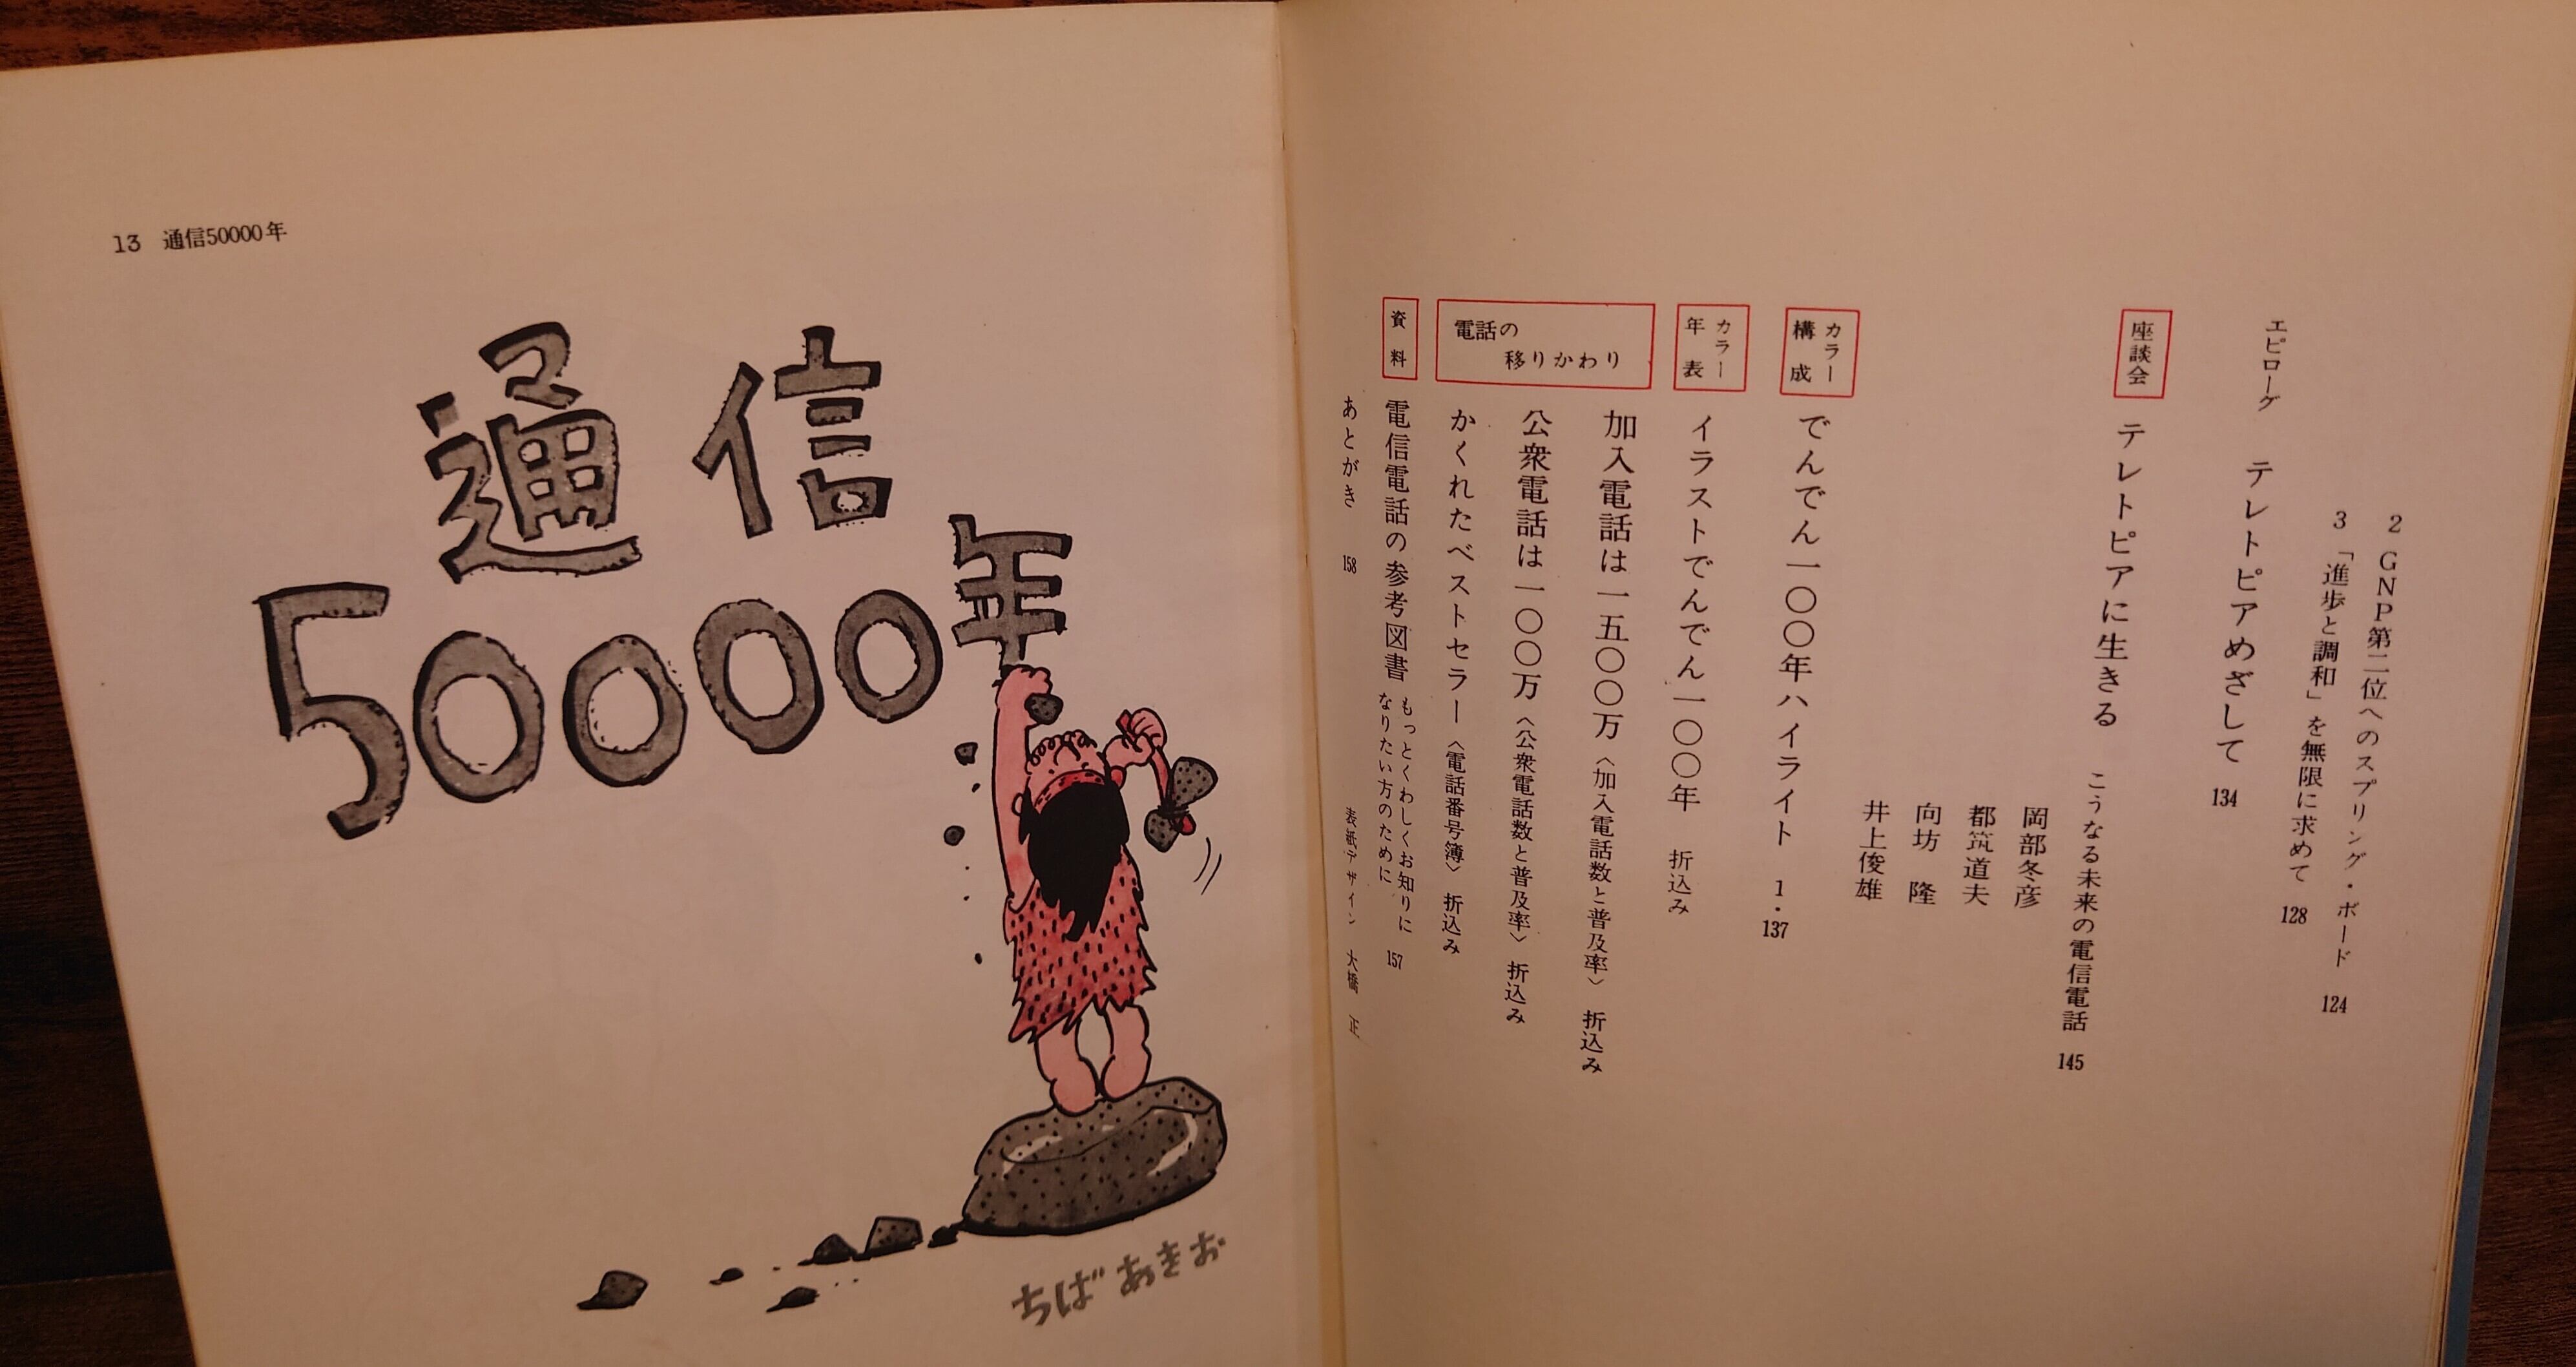 2 GNP第二位へのスプリング・ボード 124
3 「進歩と調和」を無限に求めて 128
エピローグ テレトピアめざして 134
座談会 テレトピアに生きる こうなる未来の電信電話 145
岡部冬彦
都筑道夫
向坊 隆
井上俊雄
カラー構成 でんでん一〇〇年ハイライト 1・137
カラー年表 イラストでんでん一〇〇年 折込み
電話の
移りかわり
加入電話は一五〇〇万〈加入電話数と普及率〉 折込み
公衆電話は一〇〇万〈公衆電話数と普及率〉 折込み
かくれたベストセラー〈電話番号簿〉 折込み
資料 電信電話の参考図書 もっとくわしくお知りに
なりたい方のために 157
あとがき 158
表紙デザイン 大橋 正
13 通信50000年
通信
50000年
ちばあきお